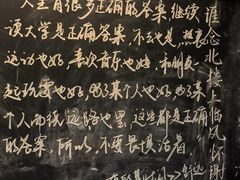 人生有很多正确的答案 继续
读大学是正确答案，不去也是，热衷
运动也好，喜欢音乐也好，和朋友
起玩耍也好，为了其他人也好，为了某
个人而误远路也罢，这些都是正确
的答案，所以，不要畏惧活着
谁念北楼上临风怀谢